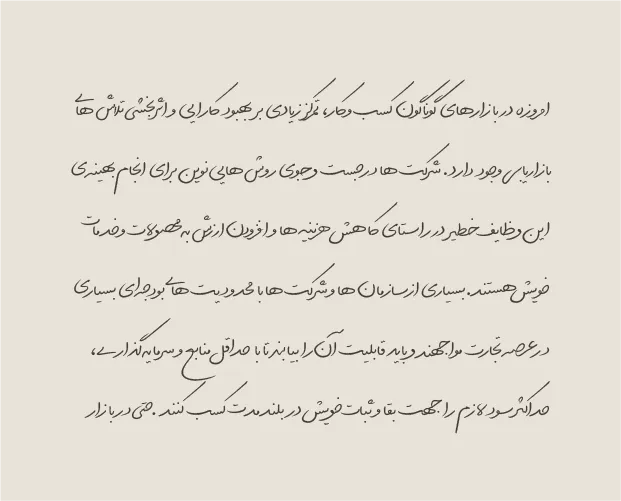 امروزه در بازارهای گوناگون کسب و کار، تمرکز زیادی بر بهبود کارایی و اثربخشی تلاش های
بازاریابی وجود دارد. شرکت ها در جست و جوی روش هایی نوین برای انجام بهینه ی
این وظایف خطیر در راستای کاهش هزینه ها و افزودن ارزش به محصولات و خدمات
خویش هستند. بسیاری از سازمان ها و شرکت ها با محدودیت های بودجه ای بسیاری
در عرصه تجارت مواجهند و باید قابلیت آن را بیابند تا با حداقل منابع و سرمایه گذاری،
حداکثر سود لازم را جهت بقا و ثبات خویش در بلند مدت کسب کنند. حتی در بازار